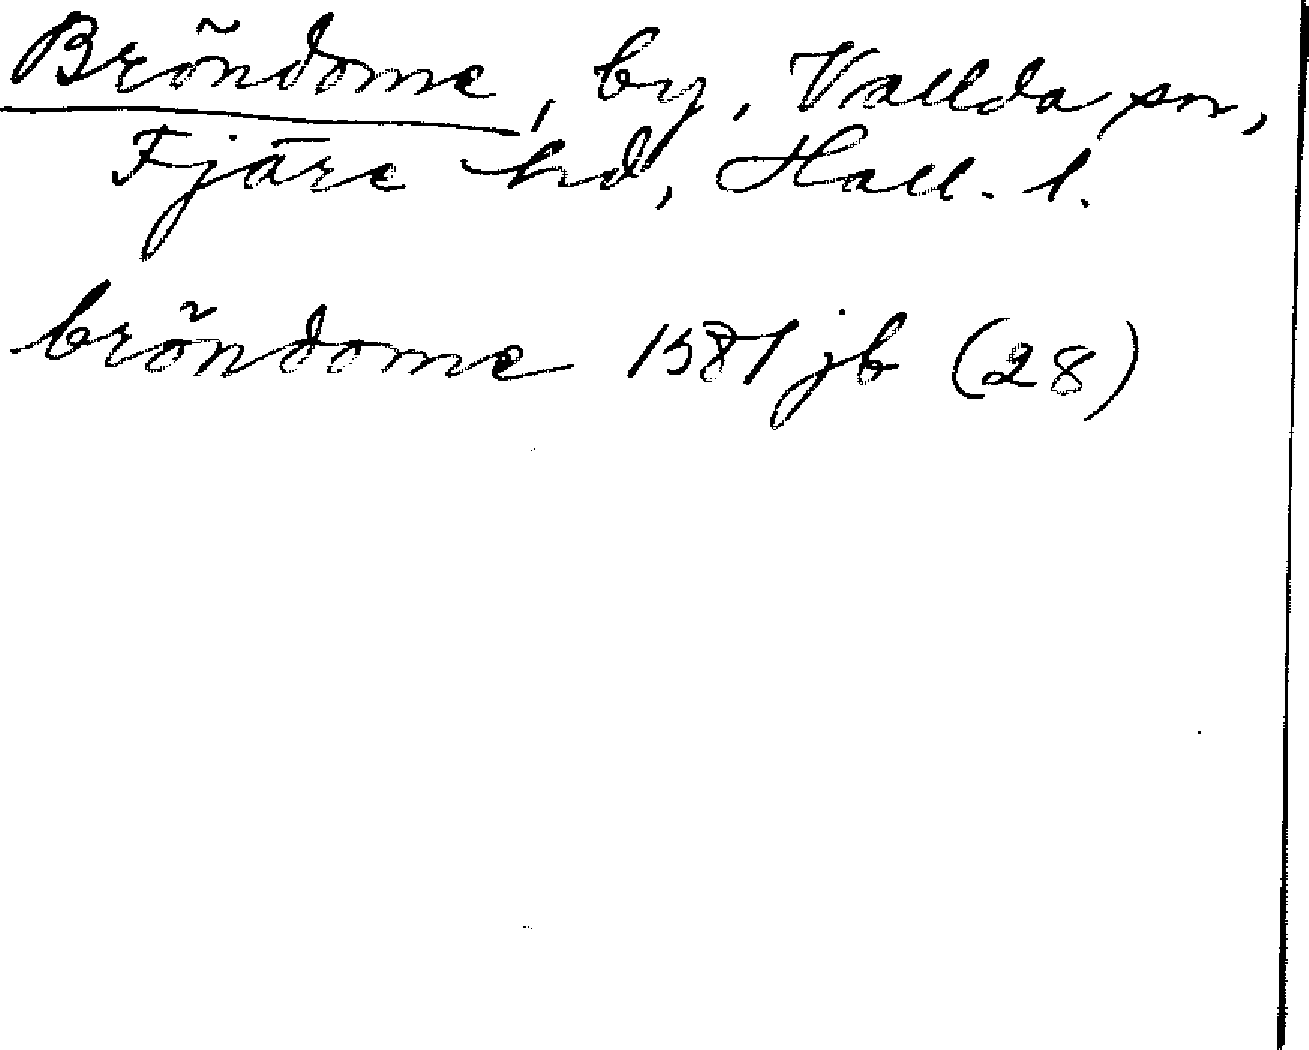 Bröndome, by, Vallda sn,
Fjäre hd, Hall. l.
bröndome 1581 jb (28)